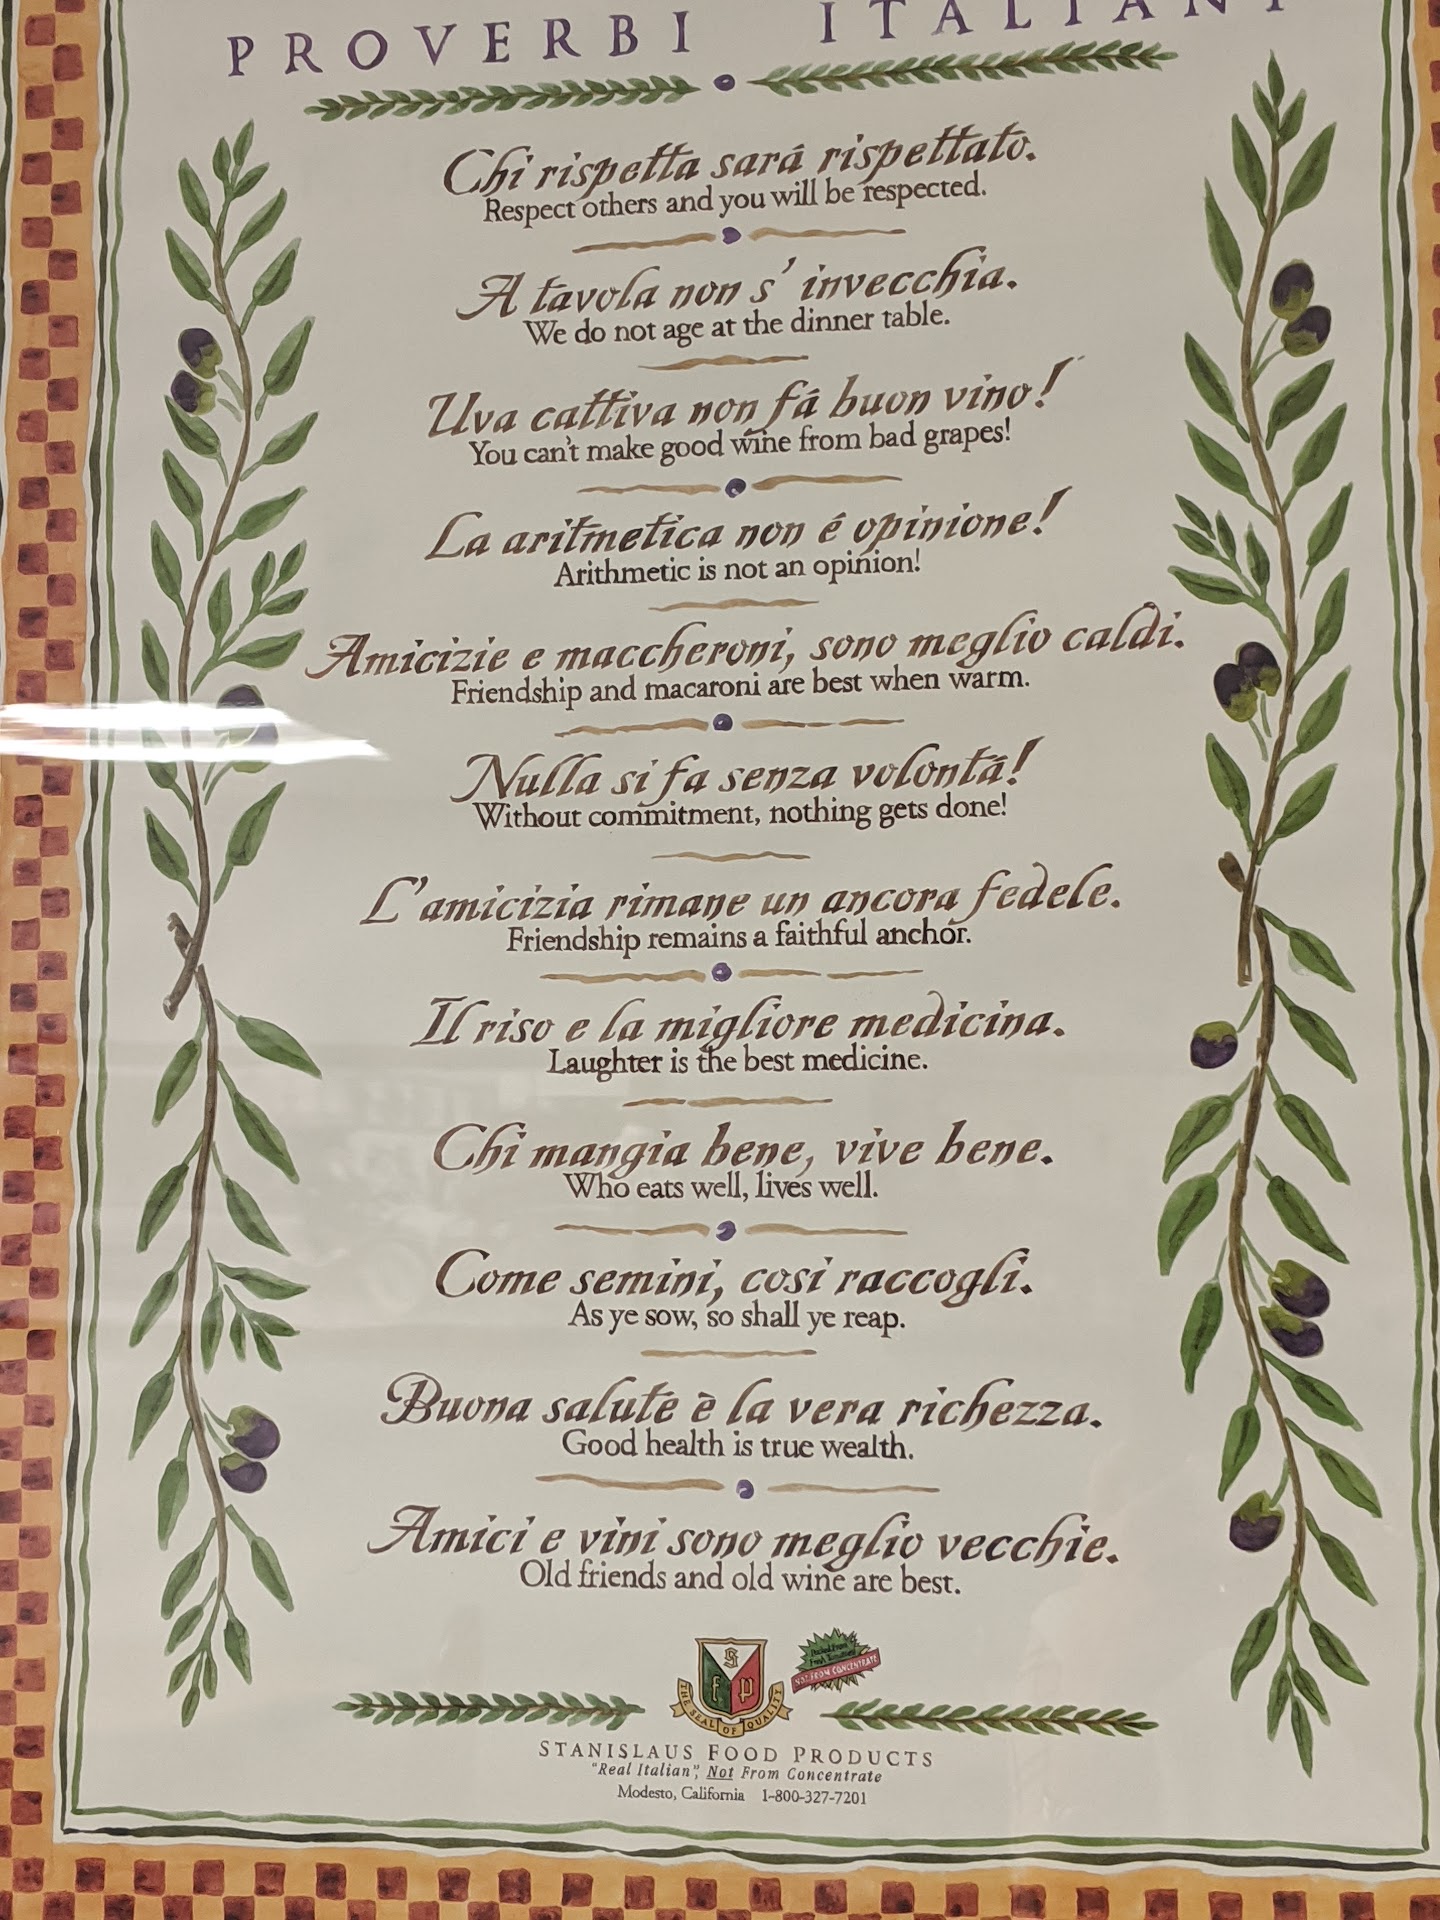 PROVERBI ITALIANI
Chi rispetta sará rispettato.
Respect others and you will be respected.
A tavola non s' invecchia.
We do not age at the dinner table.
Uva cattiva non fá buon vino!
You can't make good wine from bad grapes!
La aritmetica non é opinione!
Arithmetic is not an opinion!
Amicizie e maccheroni, sono meglio caldi.
Friendship and macaroni are best when warm.
Nulla si fa senza volontá!
Without commitment, nothing gets done!
L'amicizia rimane un ancora fedele.
Friendship remains a faithful anchor.
Il riso e la migliore medicina.
Laughter is the best medicine.
Chi mangia bene, vive bene.
Who eats well, lives well.
Come semini, cosi raccogli.
As ye sow, so shall ye reap.
Buona saluté è la vera richezza.
Good health is true wealth.
Amici e vini sono meglio vecchie.
Old friends and old wine are best.
S
f P
THE SEAL OF QUALITY
Packed From
Fresh Tomatoes
NOT FROM CONCENTRATE
STANISLAUS FOOD PRODUCTS
"Real Italian", Not From Concentrate
Modesto, California 1-800-327-7201